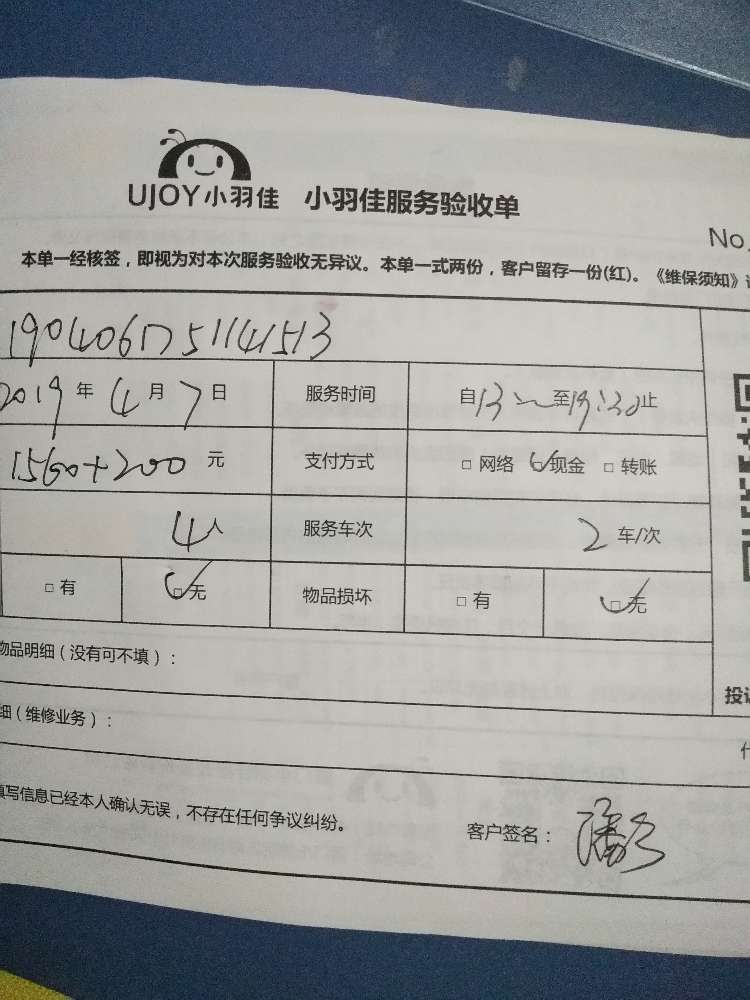 UJOY小羽佳 小羽佳服务验收单
No.
本单一经核签，即视为对本次服务验收无异议。本单一式两份，客户留存一份(红)。《维保须知》
190406175114513
2019年4月7日 服务时间 自13:~至19:30止
1560+200元 支付方式 □网络 ☑现金 □转账
4人 服务车次 2车/次
□有 ☑无 物品损坏 □有 ☑无
物品明细（没有可不填）：
细（维修业务）：
填写信息已经本人确认无误，不存在任何争议纠纷。
客户签名：潘
投诉